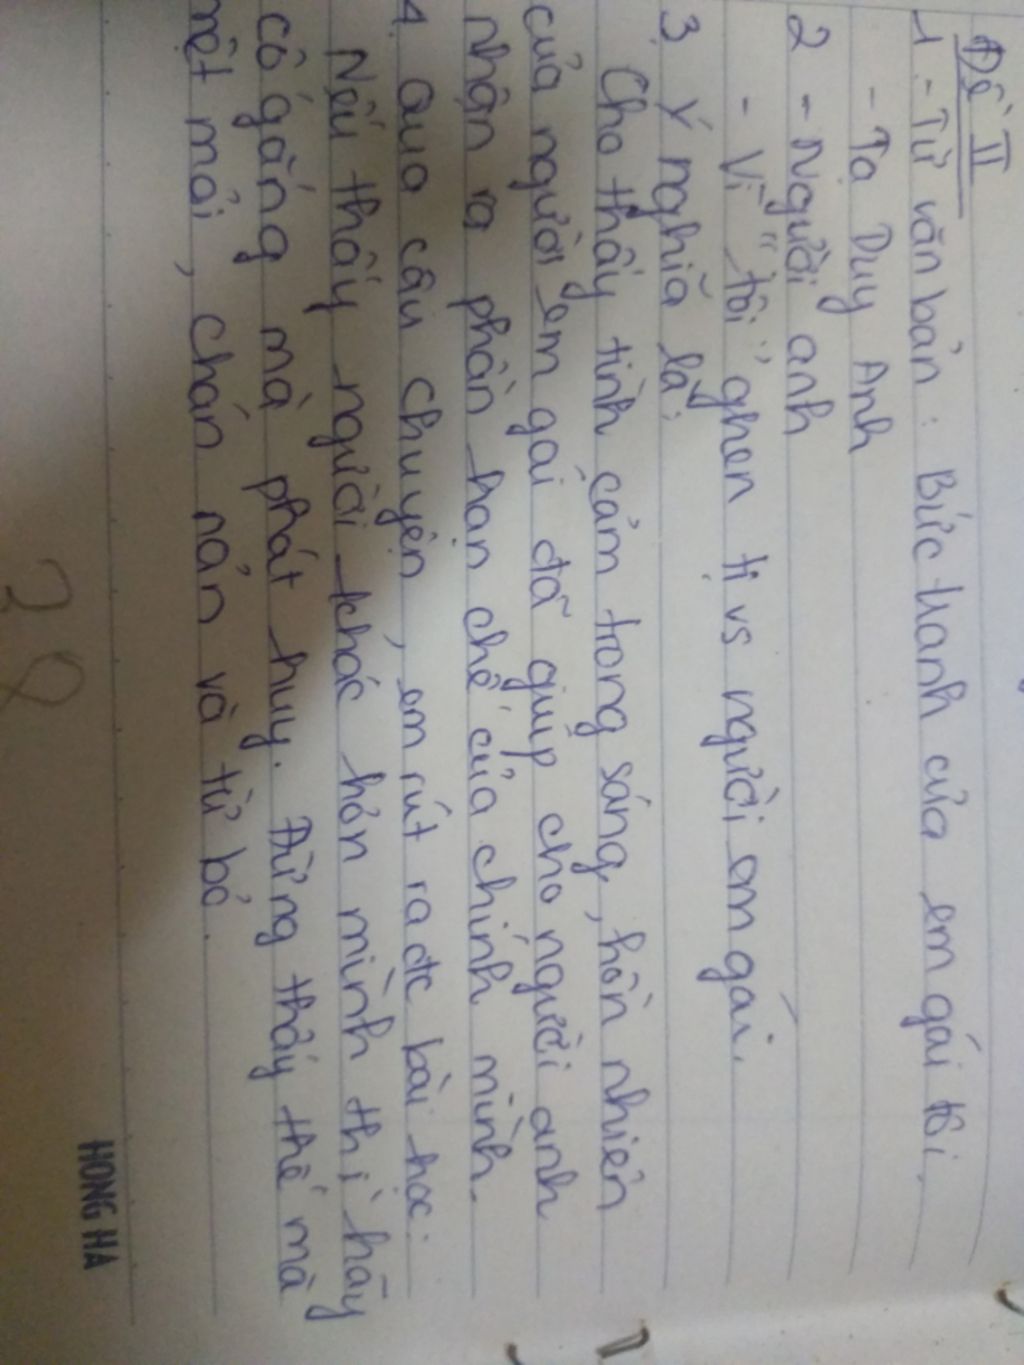 Đề II
1 - Từ văn bản : Bức tranh của em gái tôi,
- Tạ Duy Anh
2 - Người anh
- Vì "tôi" ghen tị vs người em gái.
3 Ý nghĩa là:
Cho thấy tình cảm trong sáng, hồn nhiên
của người em gái đã giúp cho người anh
nhận ra phần hạn chế của chính mình.
4. Qua câu chuyện, em rút ra đc bài học:
Nếu thấy người khác hơn mình thì hãy
cố gắng mà phát huy. Đừng thấy thế mà
mệt mỏi, chán nản và từ bỏ.
28
HONG HA